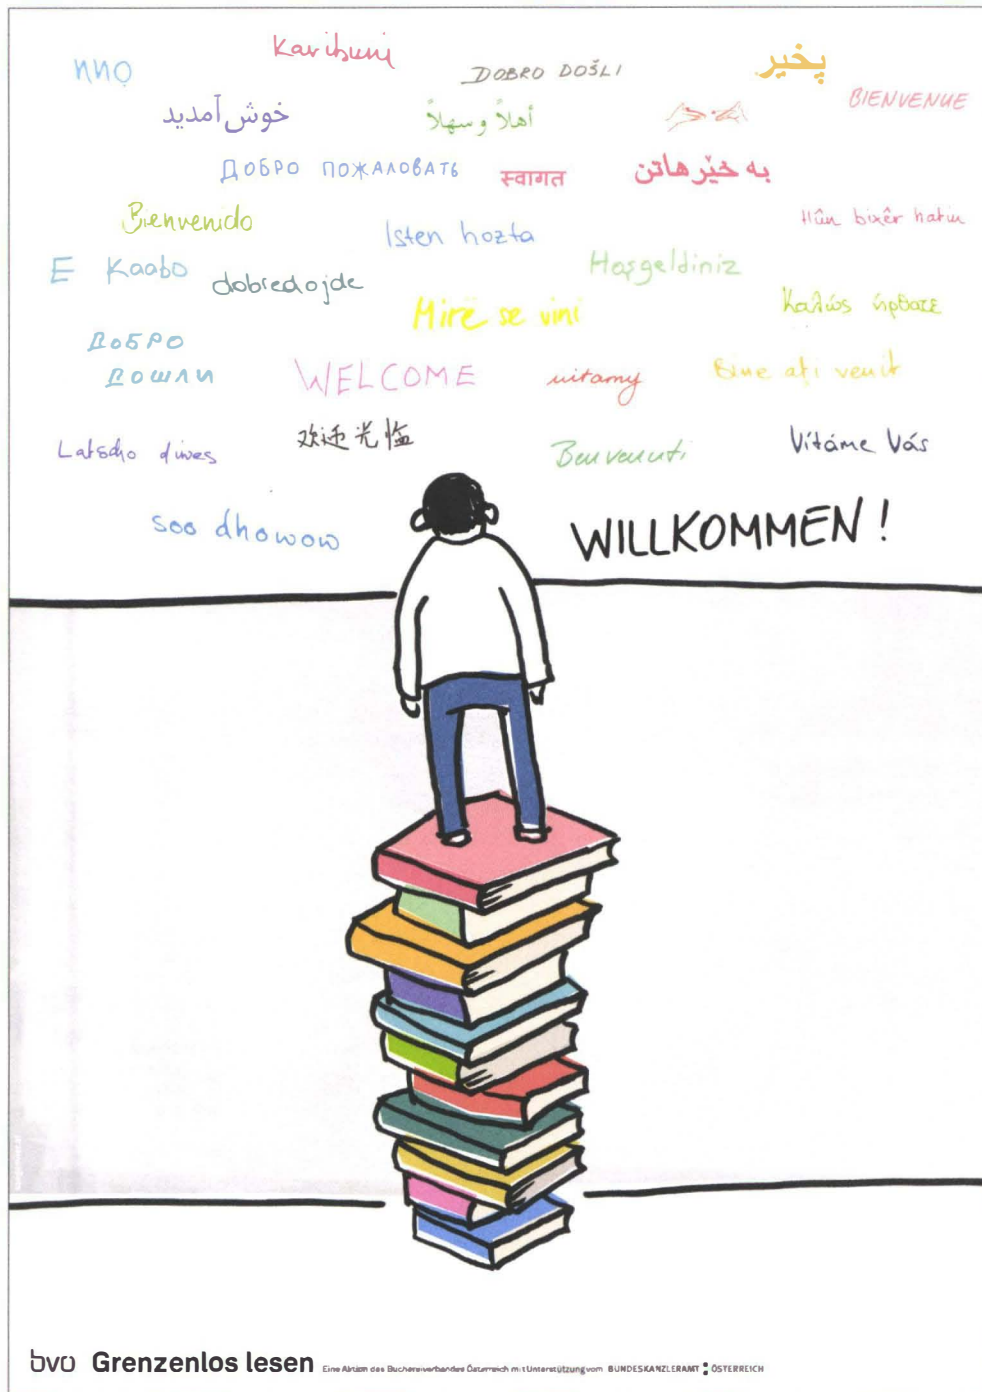 Karibuni
DOBRO DOŠLI
پخير
BIENVENUE
خوش آمدید
أهلاً وسهلاً
ДОБРО ПОЖАЛОВАТЬ
स्वागत
به خێر هاتن
Bienvenido
Isten hozta
Hûn bixêr hatin
E Kaabo
dobredojde
Hoşgeldiniz
Mirë se vini
Καλώς ήρθατε
ДОБРО
ДОШЛИ
WELCOME
witamy
Bine ați venit
Latscho diwes
欢迎光临
Benvenuti
Vítáme Vás
soo dhowow
WILLKOMMEN!
bvö Grenzenlos lesen Eine Aktion des Büchereiverbandes Österreich mit Unterstützung vom BUNDESKANZLERAMT ÖSTERREICH